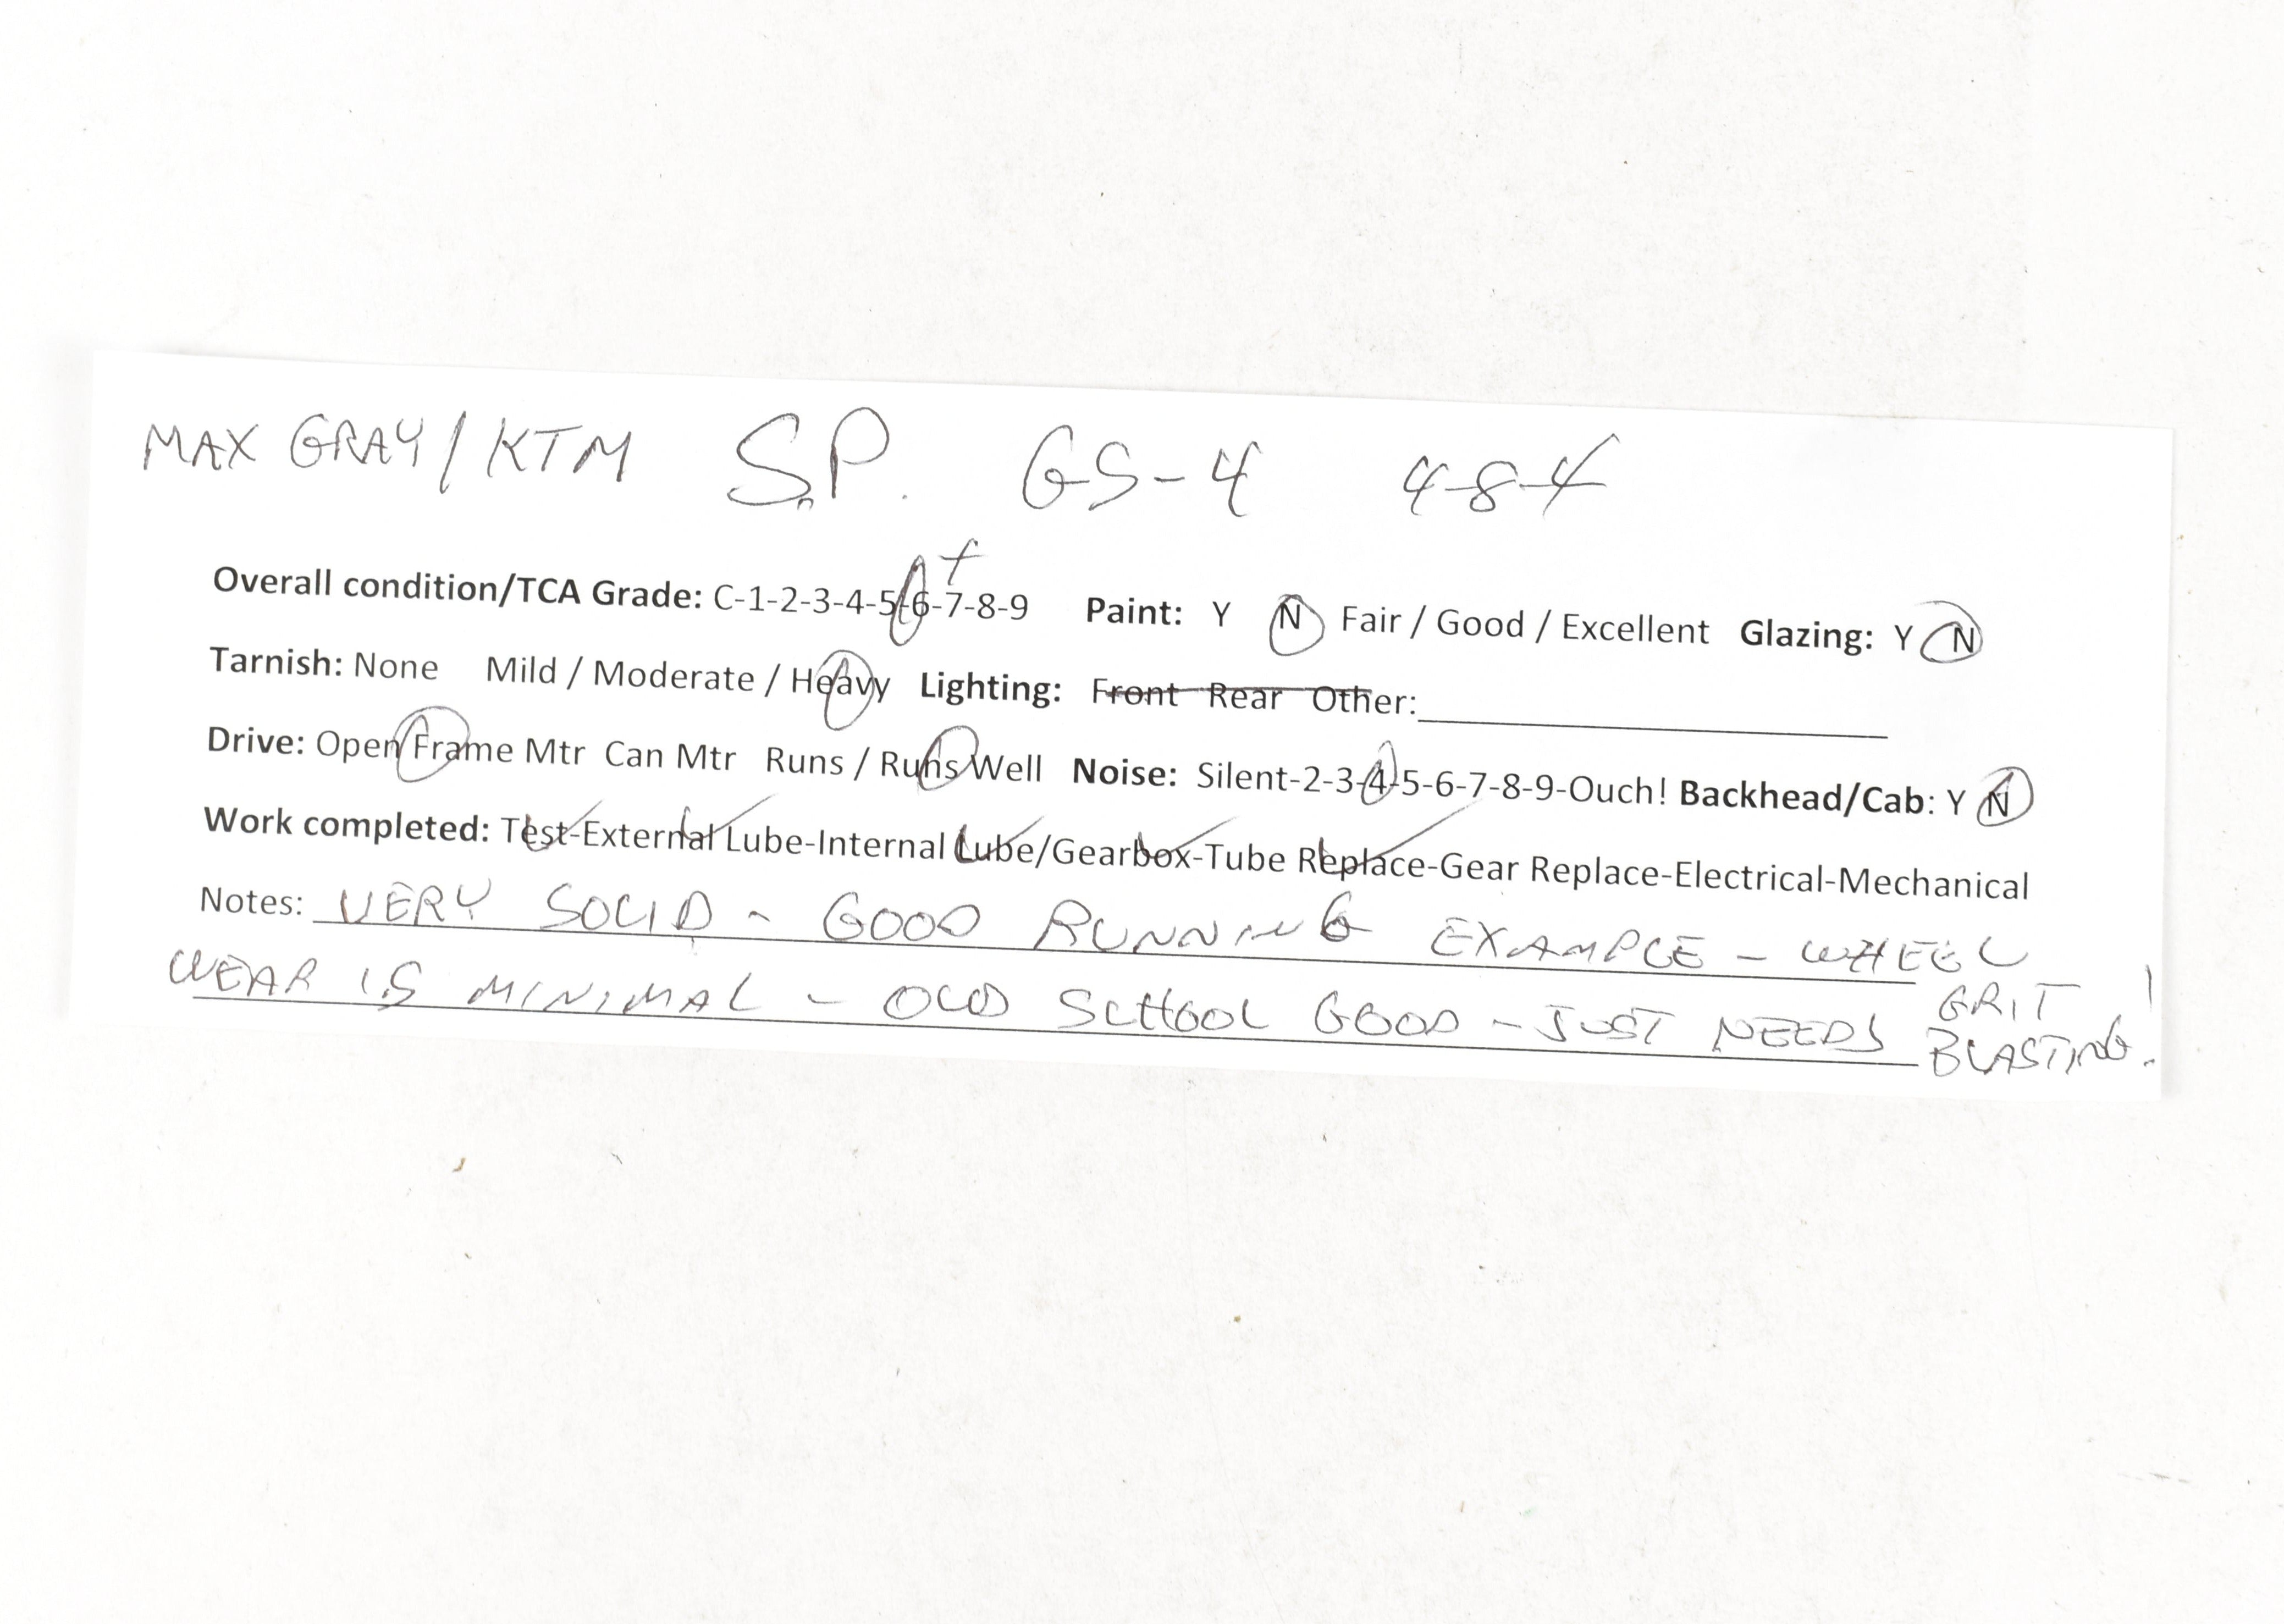 MAX GRAY/KTM S.P. GS-4 4-8-4
+
Overall condition/TCA Grade: C-1-2-3-4-5-6-7-8-9 Paint: Y N Fair / Good / Excellent Glazing: Y N
Tarnish: None Mild / Moderate / Heavy Lighting: Front Rear Other:
Drive: Open Frame Mtr Can Mtr Runs / Runs Well Noise: Silent-2-3-4-5-6-7-8-9-Ouch! Backhead/Cab: Y N
Work completed: Test-External Lube-Internal Lube/Gearbox-Tube Replace-Gear Replace-Electrical-Mechanical
Notes: VERY SOLID - GOOD RUNNING EXAMPLE - WHEEL
WEAR IS MINIMAL - OLD SCHOOL GOOD - JUST NEEDS GRIT
BLASTING!